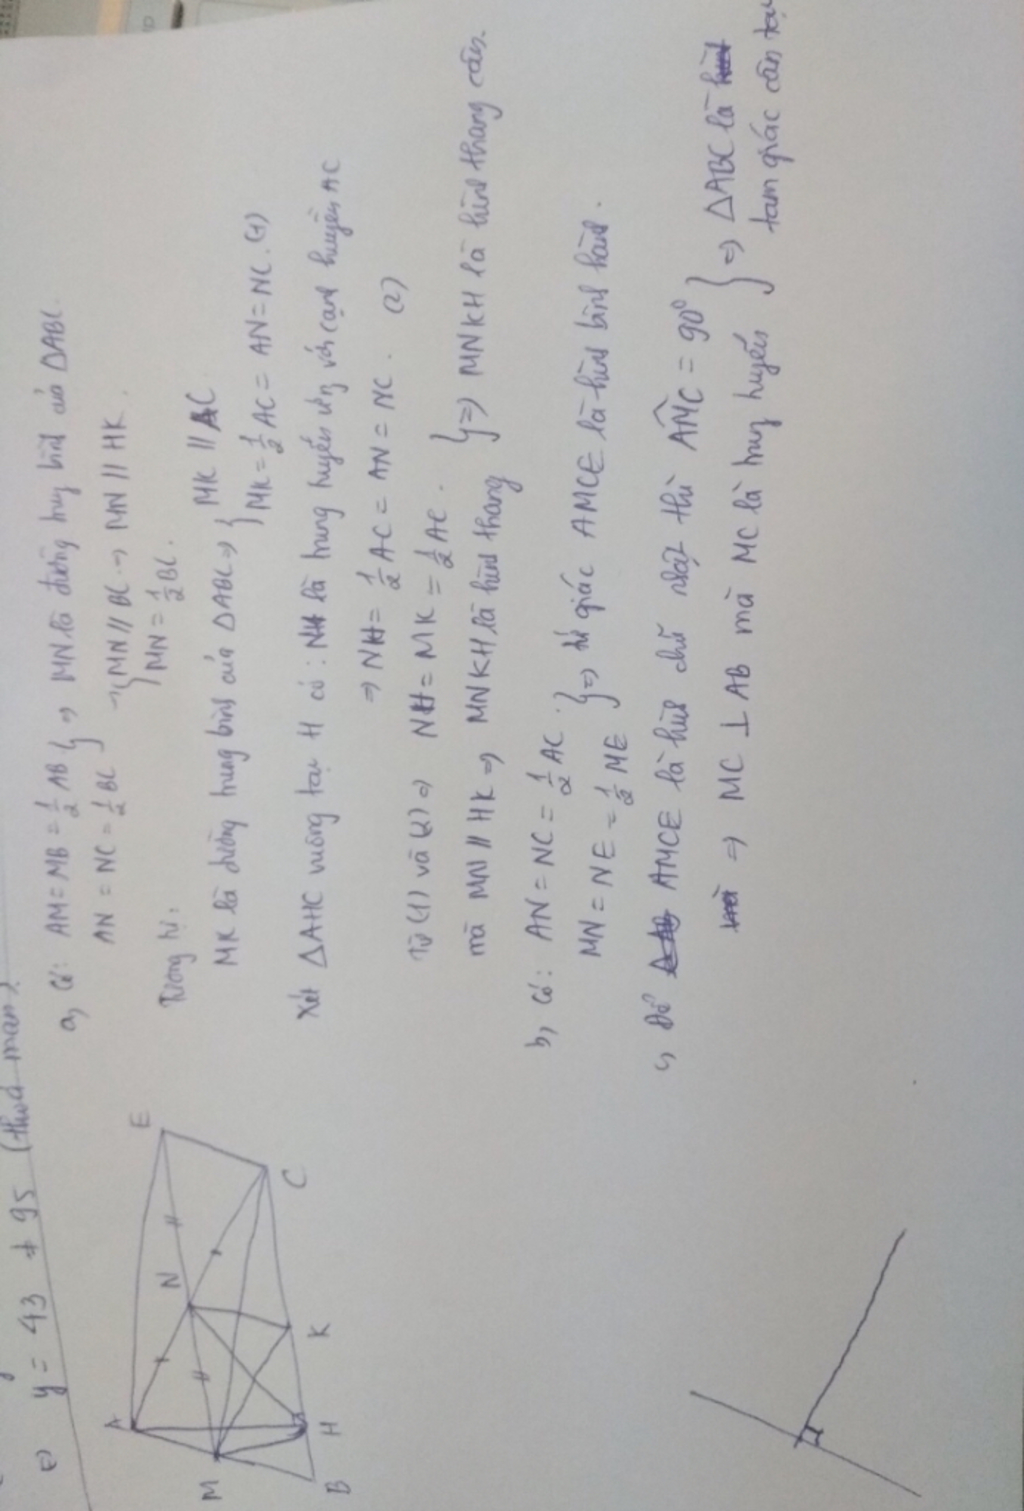 ⇔ y = 43 + 95 (thoả mãn)
A
E
N
M
C
B
H
K
a, Có: AM = MB = 1/2 AB } ⇒ MN là đường trung bình của ΔABC.
AN = NC = 1/2 BC
→ { MN // BC → MN // HK.
MN = 1/2 BC.
Tương tự:
MK là đường trung bình của ΔABC ⇒ { MK // AC
MK = 1/2 AC = AN = NC. (1)
Xét ΔAHC vuông tại H có: NH là trung tuyến ứng với cạnh huyền AC
⇒ NH = 1/2 AC = AN = NC. (2)
Từ (1) và (2) ⇒ NH = MK = 1/2 AC.
mà MN // HK ⇒ MNKH là hình thang } ⇒ MNKH là hình thang cân.
b, Có: AN = NC = 1/2 AC.
MN = NE = 1/2 ME } ⇒ tứ giác AMCE là hình bình hành.
c, Để AMCE là hình chữ nhật thì AMC = 90°
⇒ MC ⊥ AB mà MC là trung tuyến } ⇒ ΔABC là
tam giác cân tại